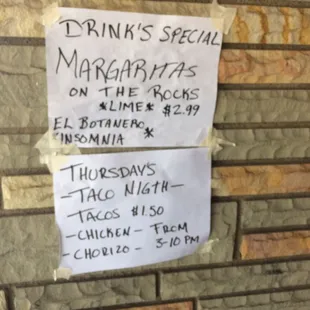 DRINK'S SPECIAL
MARGARITAS
ON THE ROCKS
*LIME* $2.99
EL BOTANERO
"INSOMNIA" *
THURSDAYS
-TACO NIGTH-
-TACOS $1.50
-CHICKEN- FROM
-CHORIZO- 3-10 PM